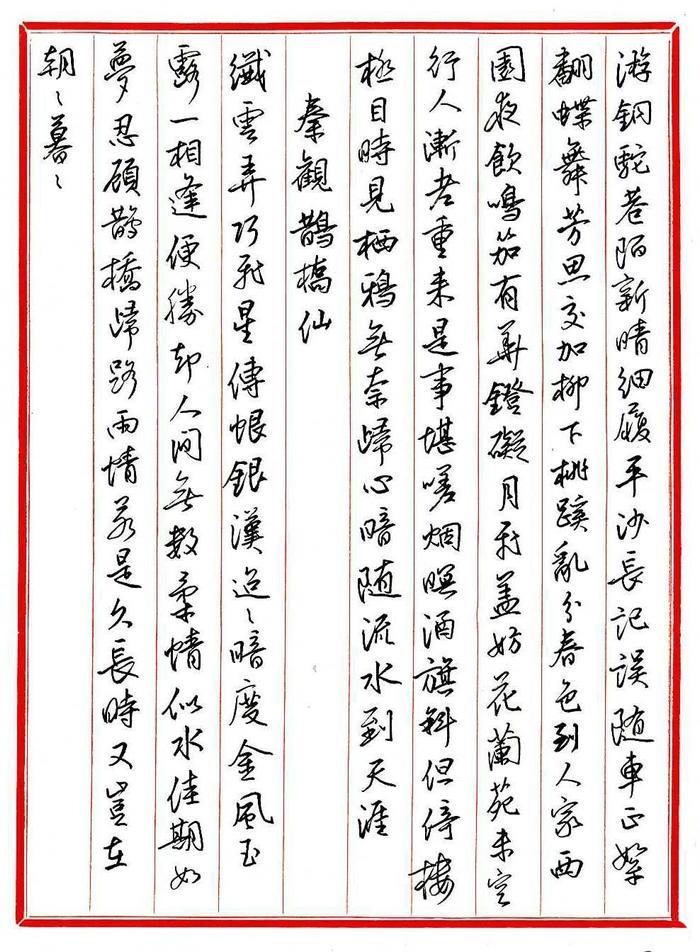 游銅駝巷陌新晴細履平沙長記誤随車正絮
翻蝶舞芳思交加柳下桃蹊亂分春色到人家西
園夜飲鳴笳有華鐙礙月飛蓋妨花蘭苑未空
行人漸老重来是事堪嗟烟暝酒旗斜但倚樓
极目時見栖鴉無奈歸心暗随流水到天涯
秦觀鵲橋仙
纖雲弄巧飛星傳恨銀漢迢〻暗度金風玉
露一相逢便勝却人间無数柔情似水佳期如
夢忍顾鵲橋歸路两情若是久長時又豈在
朝〻暮〻